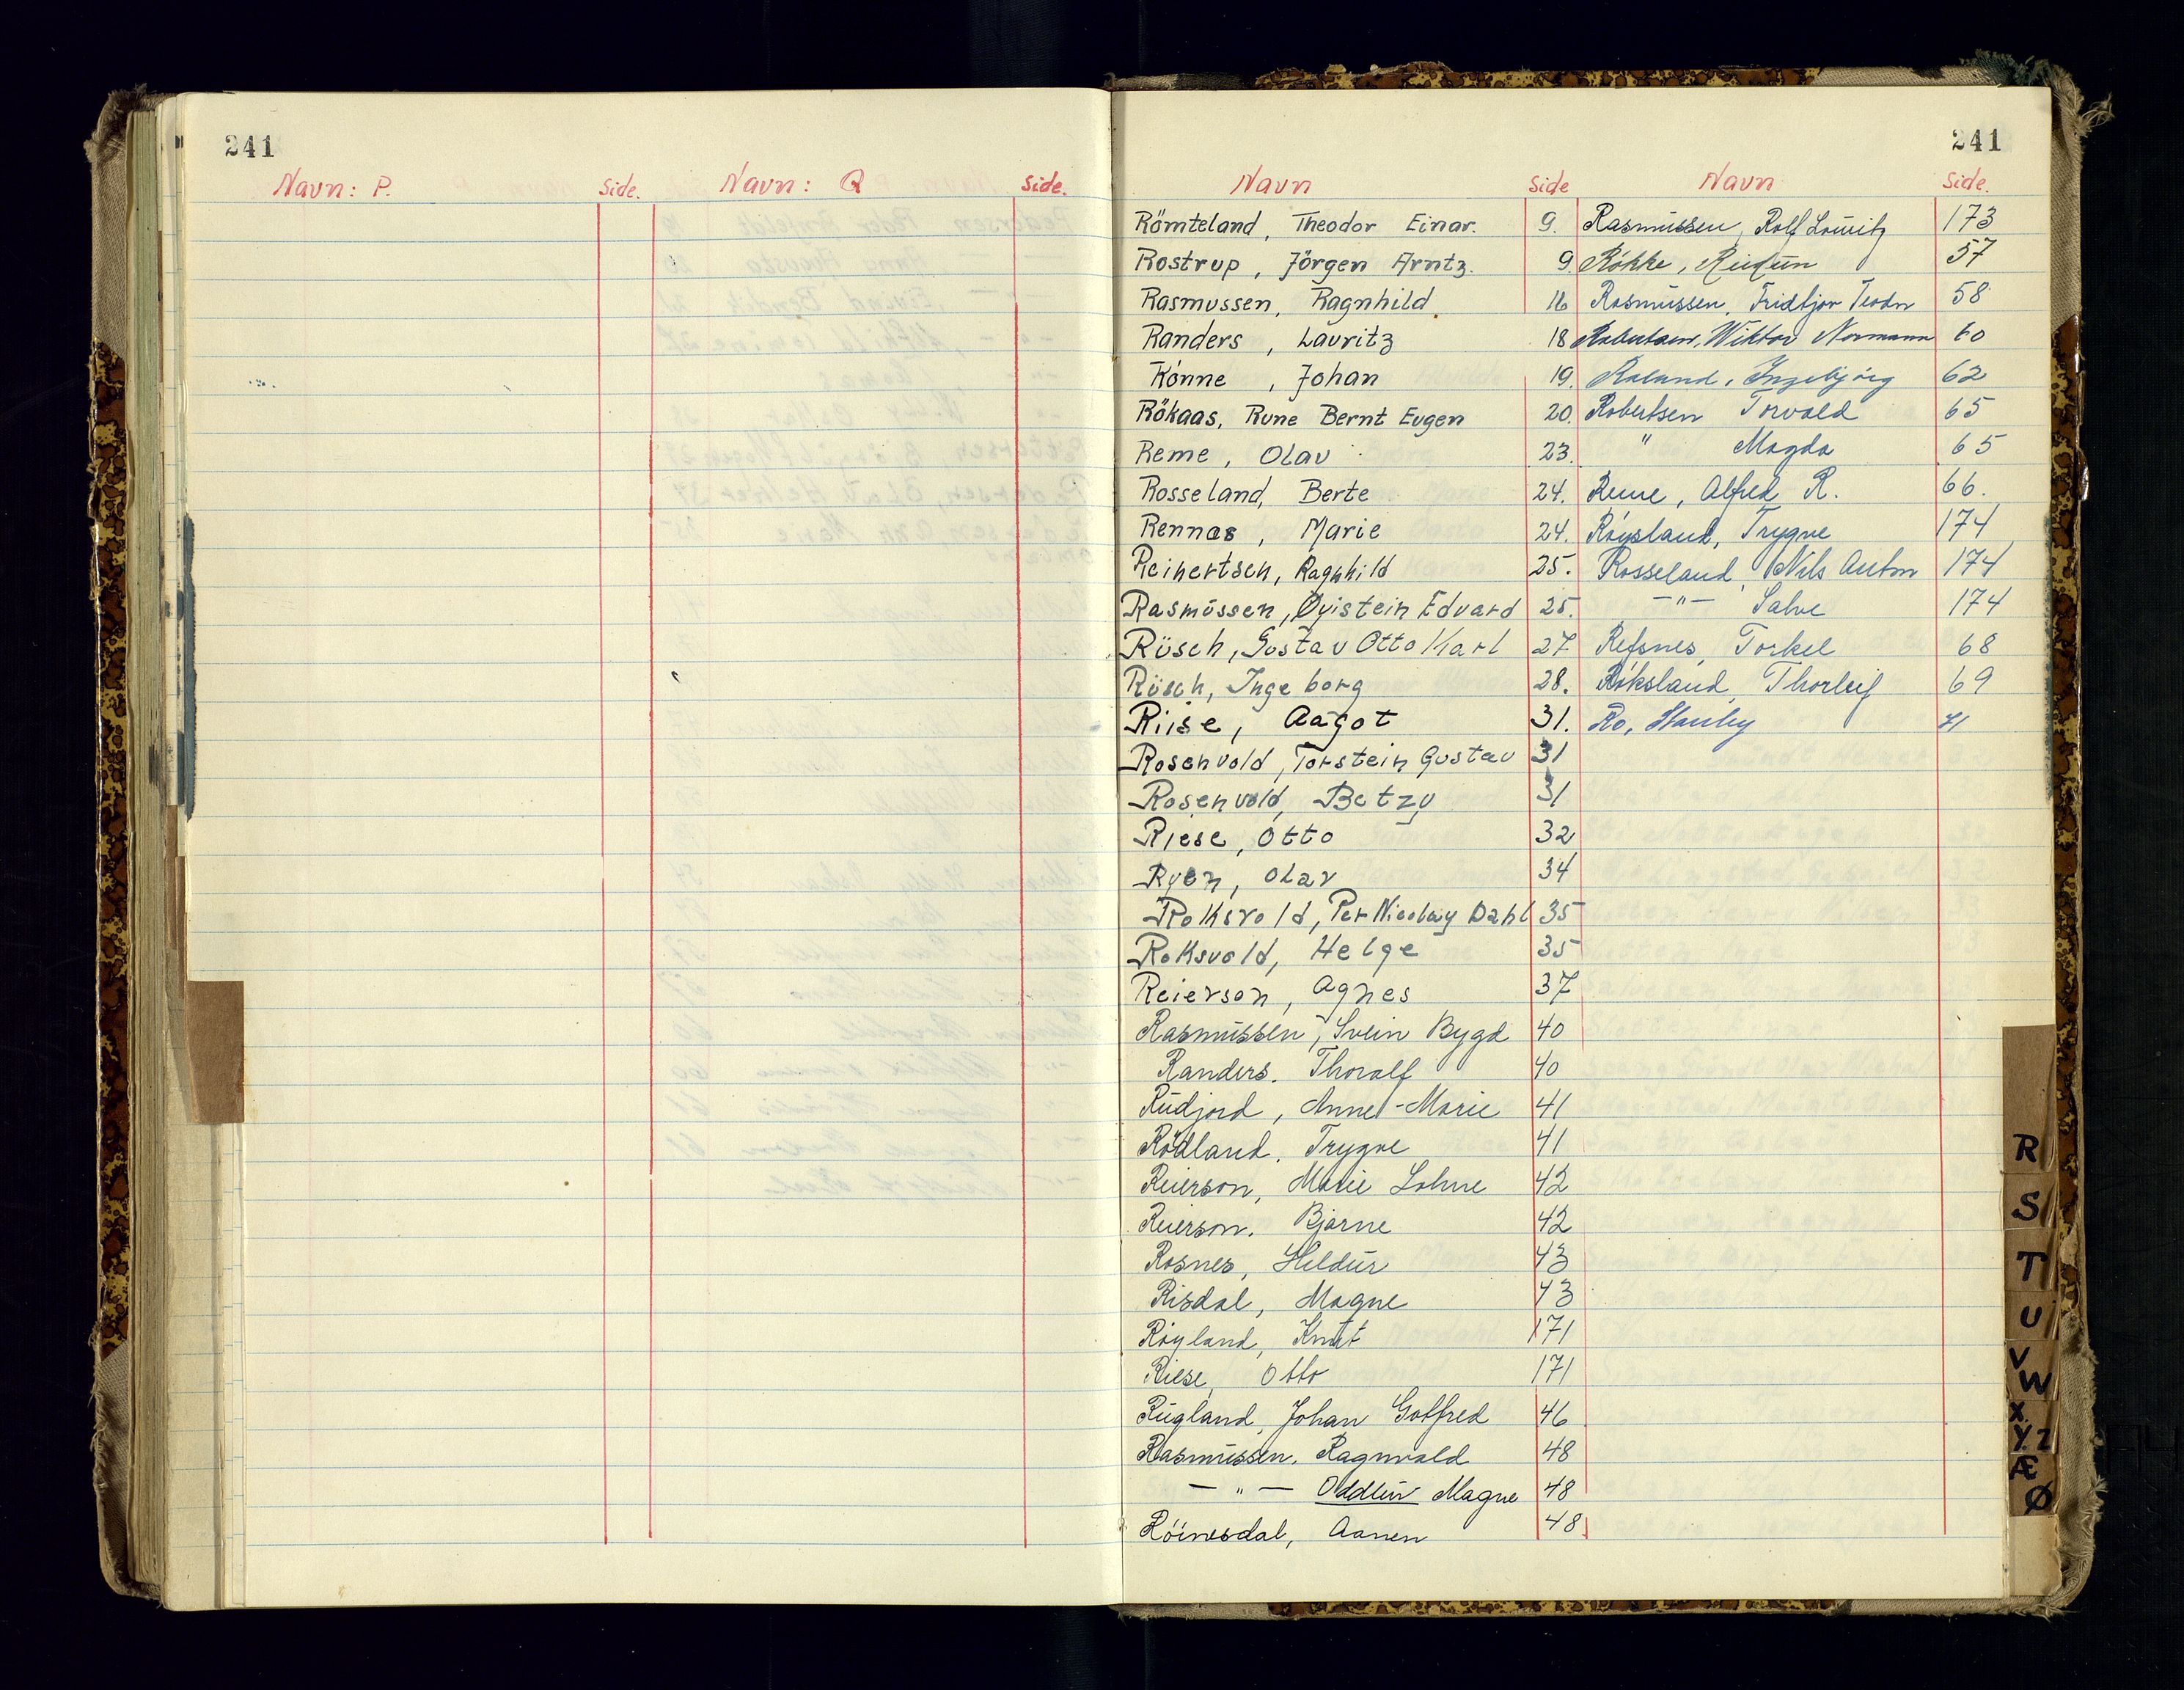 241
Navn: P. Side. Navn: Q Side.
241
Navn Side Navn Side.
Römteland, Theodor Einar. 9.
Rostrup, Jörgen Arntz. 9.
Rasmussen, Ragnhild. 16
Randers, Lauritz 18
Rönne, Johan 19.
Rökaas, Rune Bernt Eugen 20.
Reme, Olav 23.
Rosseland, Berte 24.
Rennas, Marie 24.
Reinertsen, Ragnhild 25.
Rasmussen, Øyistein Edvard 25.
Rüsch, Gustav Otto Karl 27
Rüsch, Ingeborg 28.
Riise, Aagot 31.
Rosenvold, Torstein Gustav 31
Rosenvold, Betzy 31
Riese, Otto 32
Ryen, Olav 34
Roksvold, Per Nicolay Dahl 35
Roksvold, Helge 35
Reierson, Agnes 37
Rasmussen, Svein Bygd 40
Randers. Thoralf 40
Rudjord, Anne-Marie 41
Rödland. Trygve 41
Reierson, Marie Lohne 42
Reierson. Bjarne 42
Rosnes, Hildur 43
Risdal, Magne 43
Röyland, Knut 171
Riese, Otto 171
Rugland, Johan Gotfred 46
Rasmussen. Ragnvald 48
— " — Oddleiv Magne 48
Röinesdal, Aanen 48.
Rasmussen, Rolf Louritz 173
Rökke, Reidun 57
Rasmussen, Fridtjov Teodor 58
Robertsen, Wiktor Normann 60
Roland, Ingebjörg 62
Robertsen Torvald 65
" Magda 65
Reme, Alfred R. 66.
Röysland, Trygve 174
Rosseland, Nils Anton 174
— " — Salve 174
Refsnes, Torkel 68
Röksland, Thorleif 69
Ro, Stanley 71
R
S
T
U
V
W
X
Y Z
Æ
Ø